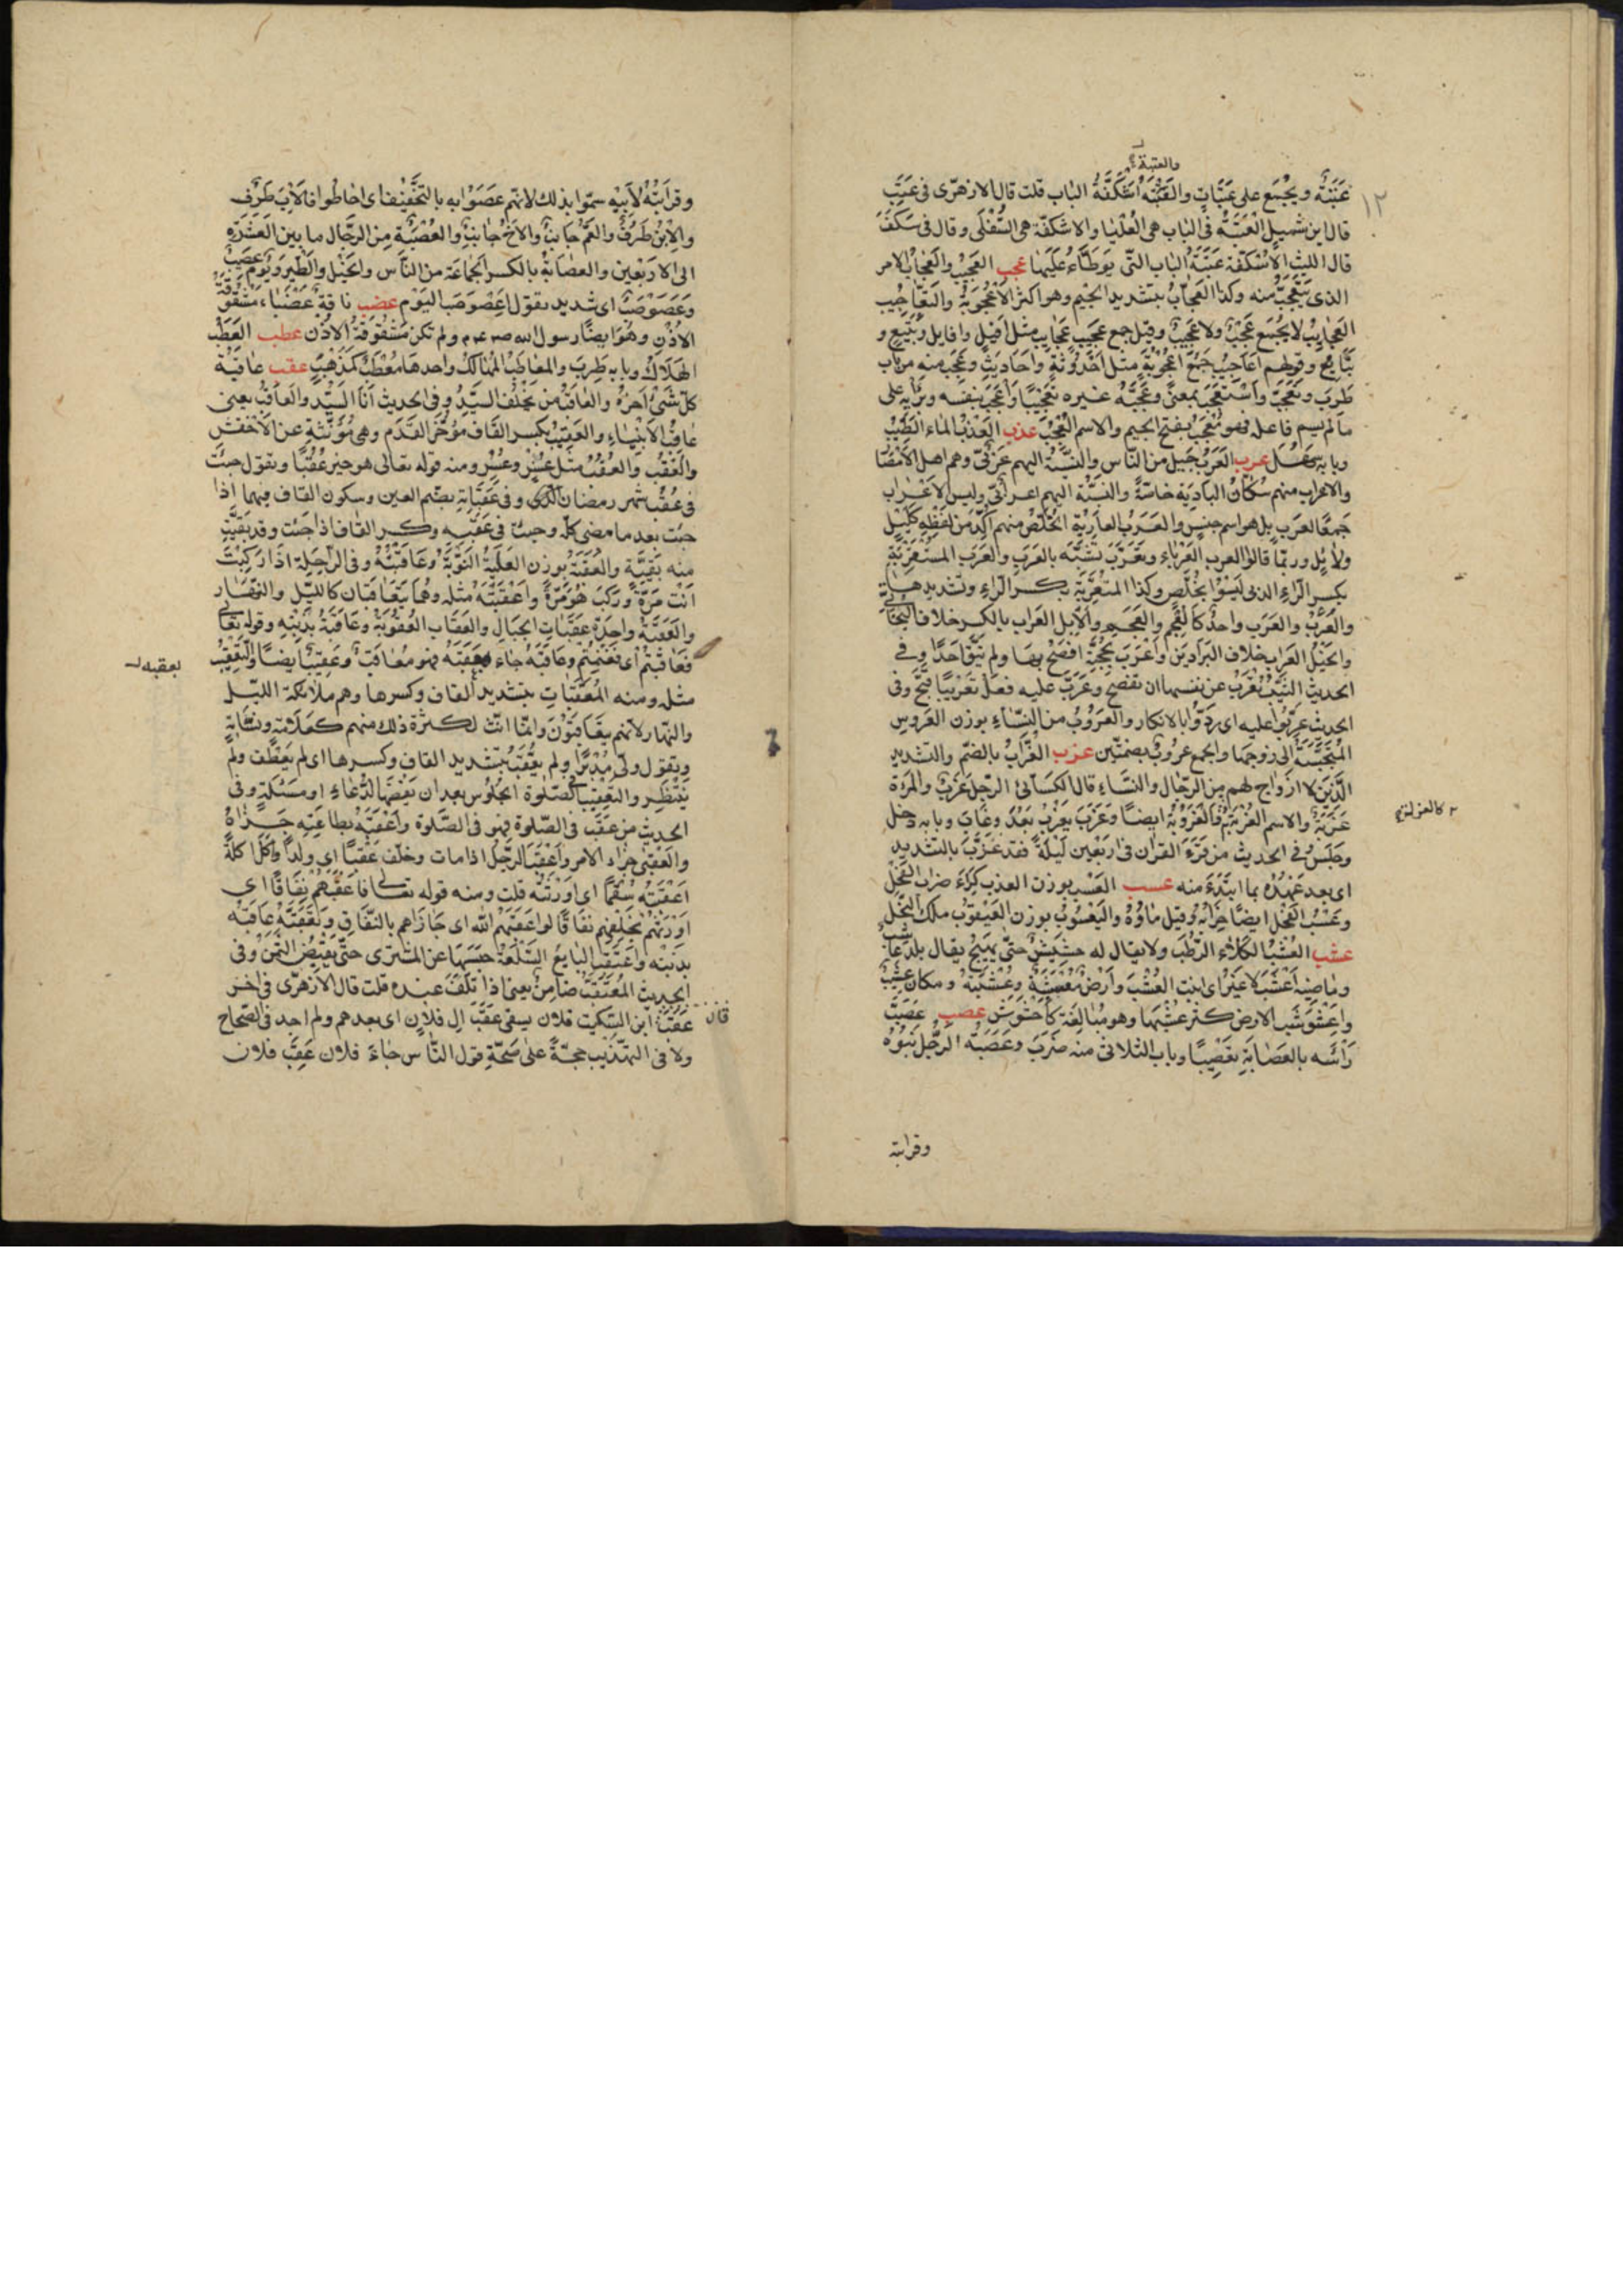 والعتبة
١٢
عَتَبَةٌ ويُجْمَع على عَتَبَاتٍ والعَتَبَةُ اُسْكُفَّةُ الباب قلت قال الازهرى فى عَتَبَ
قال ابن شميل العَتَبَةُ فى الباب هى العُلْيَا والاسكفّة هى السُّفْلَى وقال فى سَكَفَ
قال الليث الاسْكفّة عَتَبَةُ الباب التّى يوطَأُ عَلَيها عجب العَجِيْبُ والعُجابُ الامر
الذى يُتَعَجَّبُ منه وكذا العُجّابُ بتشديد الجيم وهو اكثر الاُعْجُوبَةُ والتَعَاجِيب
العَجايبُ لا يُجْمَع عَجَبٌ ولا عَجِيبٌ وقيل جمع عَجِيبٍ عَجَايب مثل افيل وافايل وتَبِيعٍ و
تَبَايعَ وقولهم اعَاجيبُ جَمْعُ اُعْجُوبَةٍ مثل اُحْدُوثَةٍ واَحَاديَثَ وعَجِبَ منه من باب
طَرِبَ وتَعَجَّبَ واسْتَعْجَبَ بمعنًى وعَجَّبَ غيره تَعْجِيْبًا واُعْجِبَ بنفسه وبرأيه على
ما لم يسم فاعله فهو مُعْجَبٌ بفتح الجيم والاسم العُجْبُ عذب العَذْبُ الماء الطيّبُ
وبابه سَهُلَ عرب العَرَبُ جِيلٌ من النّاس والنِّسْبَةُ اليهم عَرَبىٌّ وهم اهل الاَمْصَار
والاعراب منهم سُكّانُ البادِيَة خاصّةً والنسْبَةُ اليهم اعرابىٌّ وليس الاَعْرَاب
جَمعًا لعَرَبٍ بل هو اسم جنسٍ والعَرَبُ العارِبَة الخُلّصُ منهم اُكِّدَ من لَفْظِهِ كَلَيْلٍ
ولايل وربّما قالوا العرب العَرْبَاءُ وتَعَرَّبَ تَشَبَّهَ بالعَرَبِ والعَرَب المستعْرِبَةُ
بكسر الرّاء الذين لَيْسُوا بخُلّصٍ وكذا المتعَرِّبَة بكسر الرّاءِ وتشديدها
والعُرْبُ والعَرَب واحدٌ كَالعُجْمِ والعَجَم والاِبل العِراب بالكسر خلاف البخَاتىّ
والخَيْلُ العِرَاب خلاف البَرَاذين واَعْرَبَ بحُجَّتِهِ افصَحَ بهَا ولم يتَّقِ احَدًا وفى
الحديث الثيِّبُ تُعْرِبُ عن نفسها ان تفصح وعَرَّبَ عليه فعلَهُ تَعْرِيبًا قبّحَ وفى
الحديث عَرِّبُوا عليه اى رُدّوا بالانكار والعَرُوبُ من النِّسَاءِ بوزن العَروس
المُتحَبِّبَةُ الى زوجها والجمع عُرُوبٌ بضمتّين عزب العُزّابُ بالضمّ والتشديد
الَّذِينَ لا ازواج لهم من الرّجال والنسَاءِ قال الكسَائى الرّجل عَزَبٌ والمرَاة
٢ كالعزلة
عَزَبَةٌ والاسم العُزْبَةُ والعُزُوبَةُ ايضًا وعَزَبَ يَعْزُبُ بَعُدَ وغَابَ وبابه دخل
وجَلَسَ وفى الحديث من قَرَءَ القران فى اربَعِين لَيْلَةً فقد عَزَّبَ بالتشديد
اى بعد عَهْدُهُ بما ابتَدَءَ منه عسب العَسْبُ بوزن العذب كِرَاءُ ضِراب الفَحْل
وعَسْبُ الفَحْلِ ايضًا ضِرَابُهُ وقيل مَاؤُهُ واليَعْسُوبُ بوزن اليَعْقوب ملك النّحل
عشب العُشْبُ الكَلاءُ الرَّطْب ولا يقال له حشيشٌ حتّى يَهِيج يقال بلدٌ عَاشِبٌ
وماضيه اَعْشَبَ لا غيْرُ اى انبت العُشْبَ وأرْضٌ مُعْشِبَةٌ وعَشِبَةٌ ومكانٌ عَشِيبٌ
واعْشَوْشَبَتِ الارض كثر عُشْبُهَا وهو مُبَالغَةٌ كاخْشَوشَنَ عصب عَصَّبَ
رَاسَه بالعِصَابَةِ تعْصِيبًا وباب الثلاثى منه ضَرَبَ وعَصَبَةُ الرَّجُل بَنُوهُ
وقرابتة
وقرابَتُهُ لأبِيْهِ سمّوا بذلك لانهم عَصَبُوا به بالتخْفِيْف اى احاطوا فالاَبُ طَرَف
والاِبْنُ طَرَفٌ والعَمُّ جَانبٌ والاخُ جَانبٌ والعُصْبَةُ من الرّجال ما بين العَشرَةِ
الى الاربَعين والعصَابَةُ بالكسر الجَماعَة من النَّاس والخَيْل والطّير ويومٌ عصيبٌ
وعَصَبْصَبٌ اى شديد تقول اعْصَوْصَبَ اليَوْم عضب ناقةٌ عَضْبَاءُ مَشْقُوقَةُ
الاُذُن وهُوَ ايضًا رسول الله صم ولم تكن مَشْقوقَةَ الاُذُن عطب العَطَبُ
الهَلَاكُ وبابه طَرِبَ والمعَاطِبُ المَهَالكُ واحدها مَعْطَبٌ كمَذْهَبٍ عقب عَاقبَةُ
كلّ شَىْءٍ آخِرُهُ والعَاقبُ من يَخْلُف السيِّدَ وفى الحديث أنَا السَيِّد والعَاقبُ يعنى
عاقبُ الاَنْبيَاءِ والعَقِبُ بكسر القَاف مؤخَّر القَدَم وهى مُؤَنّثة عن الأخْفش
والعُقْبُ والعُقُبُ مثل عُسْرٍ وعُسُرٍ ومنه قوله تعالى هو خير عُقْبًا وتقول جئتُ
فى عُقْب شهر رمضان وفى عُقْبَانِهِ بضم العين وسكون القاف فيهما اذا
جئت بعد ما مضى كلّه وجئتُ فى عَقِبِهِ بكسر القاف اذا جئت وقد بَقيَتْ
منه بَقِيَّة والعُقْبَةُ بوزن العُلْبَةُ النَّوْبَةُ وعَاقَبْتُهُ وفى الرّاحِلَة اذَا رَكِبْتَ
اَنْت مَرّةً ورَكِبَ هُوَ مَرّةً واَعْقَبْتُهُ مثله وهُمَا يَتَعَاقبَان كالليّل والنّهَار
والعَقَبَةُ واحِدَةُ عَقَبَاتِ الجِبَال والعِقَاب العُقُوبَةُ وعَاقَبَهُ بذَنْبِهِ وقوله تعالى
فعَاقَبْتُم اى فغَنِمْتُم وعَاقَبَهُ جَاءَ بعَقِبِهِ فهو مُعَاقِبٌ وعَقِيبٌ ايضًا والتعْقيْبُ
بعقبه
مثله ومنه المُعَقِّبَاتِ بتشديد القاف وكسرها وهم ملائكة الليّل
والنّهار لانّهم يتعَاقبُوْن وانّما انّث لكثرة ذلك منهم كعَلّامَةٍ ونسّابَةٍ
وتقول ولّى مُدْبِرًا ولم يُعَقِّبْ بتشديد القاف وكسرها اى لم يَعْطِف ولم
يَنْتَظِر والتعْقيبُ فى الصّلوة الجُلُوس بعد ان يَقْضيَهَا لدُعَاءٍ او مَسْئلةٍ وفى
الحديث من عَقَّبَ فى الصّلوة فهو فى الصَّلوة واَعْقَبَهُ بطاعَتِهِ جَازَاهُ
والعُقْبَى جَزاء الامر واَعْقَبَ الرّجُلُ اذا مات وخلّف عَقِبًا اى ولدًا واَكَلَ اكلَةً
اَعْقَبَتْهُ سُقْمًا اى اورَثَتْهُ قلت ومنه قوله تعالى فاعقَبَهُمْ نِفَاقًا اى
اورَثَهُمْ بُخْلُهُم نفَاقًا قالوا عَقَبَهُمُ الله اى جَازَاهم بالنّفَاق وتَعَقَّبَهُ عَاقَبَهُ
بذنبه واعْتَقَبَ البايعُ السّلْعَةَ حبَسَهَا عن المشترى حتّى يَقْبِضَ الثّمَنَ وفى
الحديث المُعْتَقِبُ ضَامِنٌ يعنى اذا تَلِفَ عنده قلت قال الازهرى فى اخر
قال
عَقَبَ ابن السّكّيت فلان يسقى عَقِبَ ال فلان اى بعدهم ولم اجد فى الصّحاح
ولا فى التّهذيب حجّةً على صحّةِ قول النّاس جَاءَ فلان عَقِبَ فلان